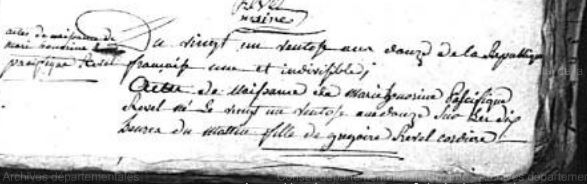 maire
acte de naissance de
marie honorine
pacifique Revel
Du vingt un ventose an douze de la Republique
française une et indivisible,
Acte de Naissance de Marie honorine Pacifique
Revel né Le vingt un ventose an douze sur Les dix
heures du Mattin fille de gregoire Revel cordier
Archives départementales
Conseil départemental